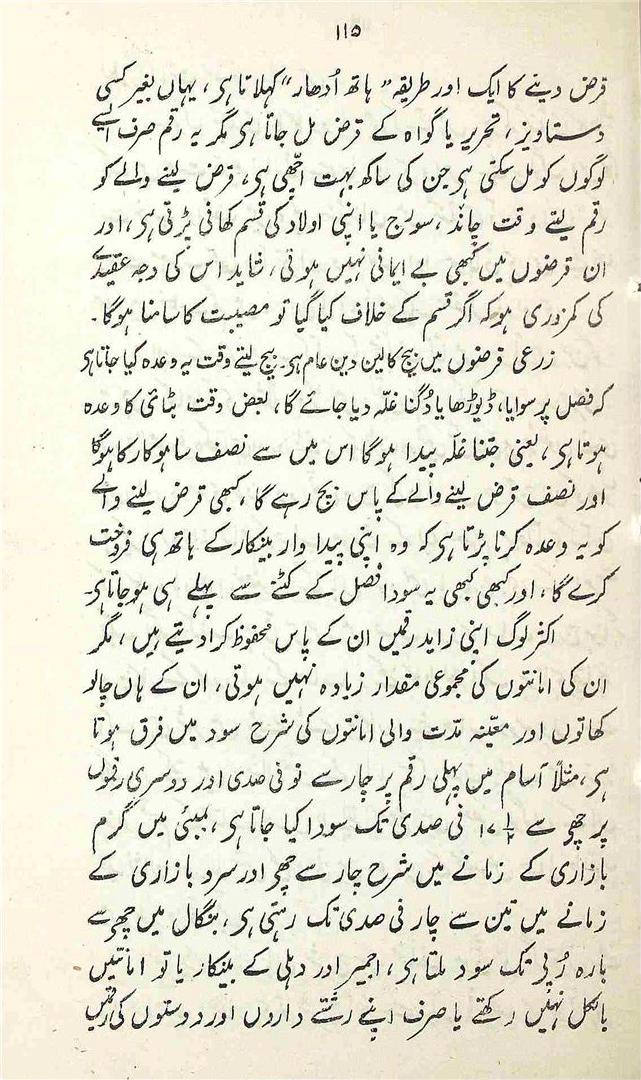 ۱۱۵
قرض دینے کا ایک اور طریقہ ”ہاتھ اُدھار“ کہلاتا ہی، یہاں بغیر کسی
دستاویز، تحریر یا گواہ کے قرض مل جاتا ہی مگر یہ رقم صرف ایسے
لوگوں کو مل سکتی ہی جن کی ساکھ بہت اچھی ہی، قرض لینے والے کو
رقم لیتے وقت چاند، سورج یا اپنی اولاد کی قسم کھانی پڑتی ہی، اور
ان قرضوں میں کبھی بے ایمانی نہیں ہوتی، شاید اس کی وجہ عقیدے
کی کمزوری ہو کہ اگر قسم کے خلاف کیا گیا تو مصیبت کا سامنا ہوگا۔
زرعی قرضوں میں بیج کا لین دین عام ہی۔ بیج لیتے وقت یہ وعدہ کیا جاتا ہی
کہ فصل پر سوایا، ڈیوڑھا یا دُگنا غلّہ دیا جائے گا، بعض وقت بٹائی کا وعدہ
ہوتا ہی، یعنی جتنا غلّہ پیدا ہوگا اس میں سے نصف ساہوکار کا ہوگا
اور نصف قرض لینے والے کے پاس بچ رہے گا، کبھی قرض لینے والے
کو یہ وعدہ کرنا پڑتا ہی کہ وہ اپنی پیداوار بینکار کے ہاتھ ہی فروخت
کرے گا، اور کبھی کبھی یہ سودا فصل کے کٹنے سے پہلے ہی ہوجاتا ہی۔
اکثر لوگ اپنی زاید رقمیں ان کے پاس محفوظ کرا دیتے ہیں، مگر
ان کی امانتوں کی مجموعی مقدار زیادہ نہیں ہوتی، ان کے ہاں چالو
کھاتوں اور معیّنہ مدّت والی امانتوں کی شرح سود میں فرق ہوتا
ہی، مثلاً آسام میں پہلی رقم پر چار سے نو فی صدی اور دوسری رقموں
پر چھو سے ۱۷ ۱/۲ فی صدی تک سودا کیا جاتا ہی، بمبئی میں گرم
بازاری کے زمانے میں شرح چار سے چھو اور سرد بازاری کے
زمانے میں تین سے چار فی صدی تک رہتی ہی، بنگال میں چھو سے
بارہ رُپی تک سود ملتا ہی، اجمیر اور دہلی کے بینکار یا تو امانتیں
بالکل نہیں رکھتے یا صرف اپنے رشتے داروں اور دوستوں کی رقمیں